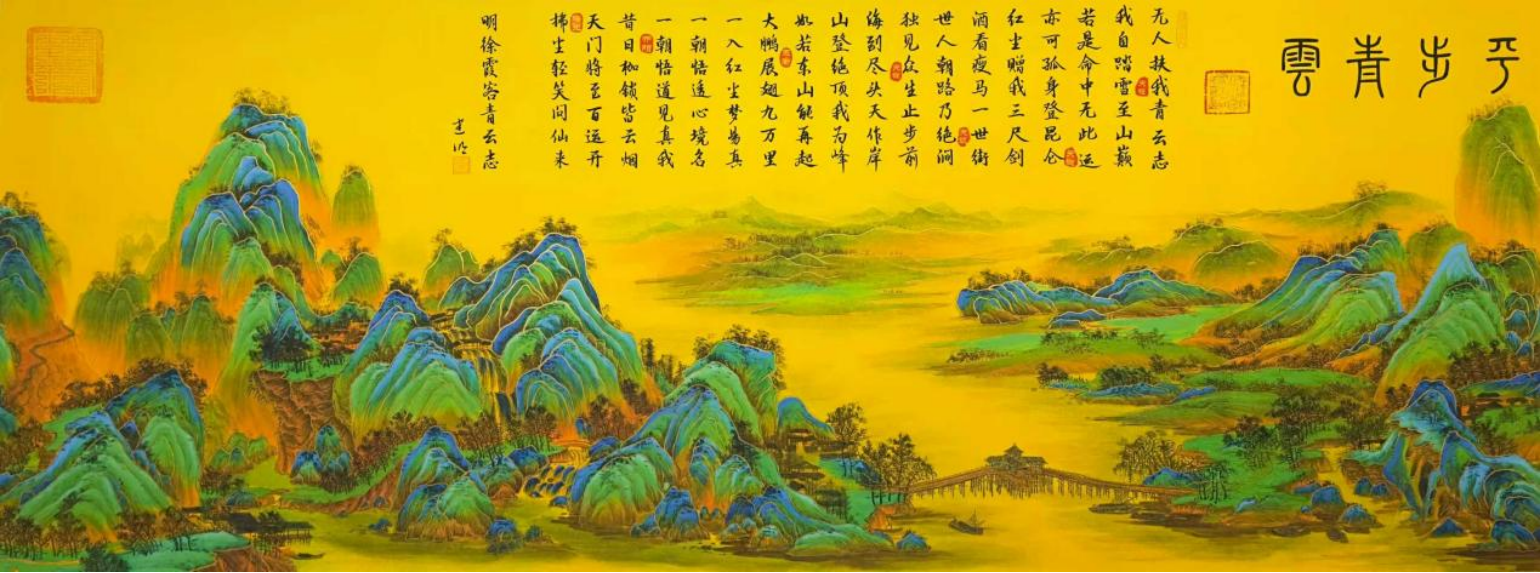 平步青雲
无人扶我青云志
我自踏雪至山巅
若是命中无此运
亦可孤身登昆仑
红尘赠我三尺剑
酒看瘦马一世街
世人朝路乃绝涧
独见众生止步前
海到尽头天作岸
山登绝顶我为峰
如若东山能再起
大鹏展翅九万里
一入红尘梦易真
一朝悟透心境名
一朝悟道见真我
昔日枷锁皆云烟
天门将至百运开
拂尘轻笑问仙来
明徐霞客青云志